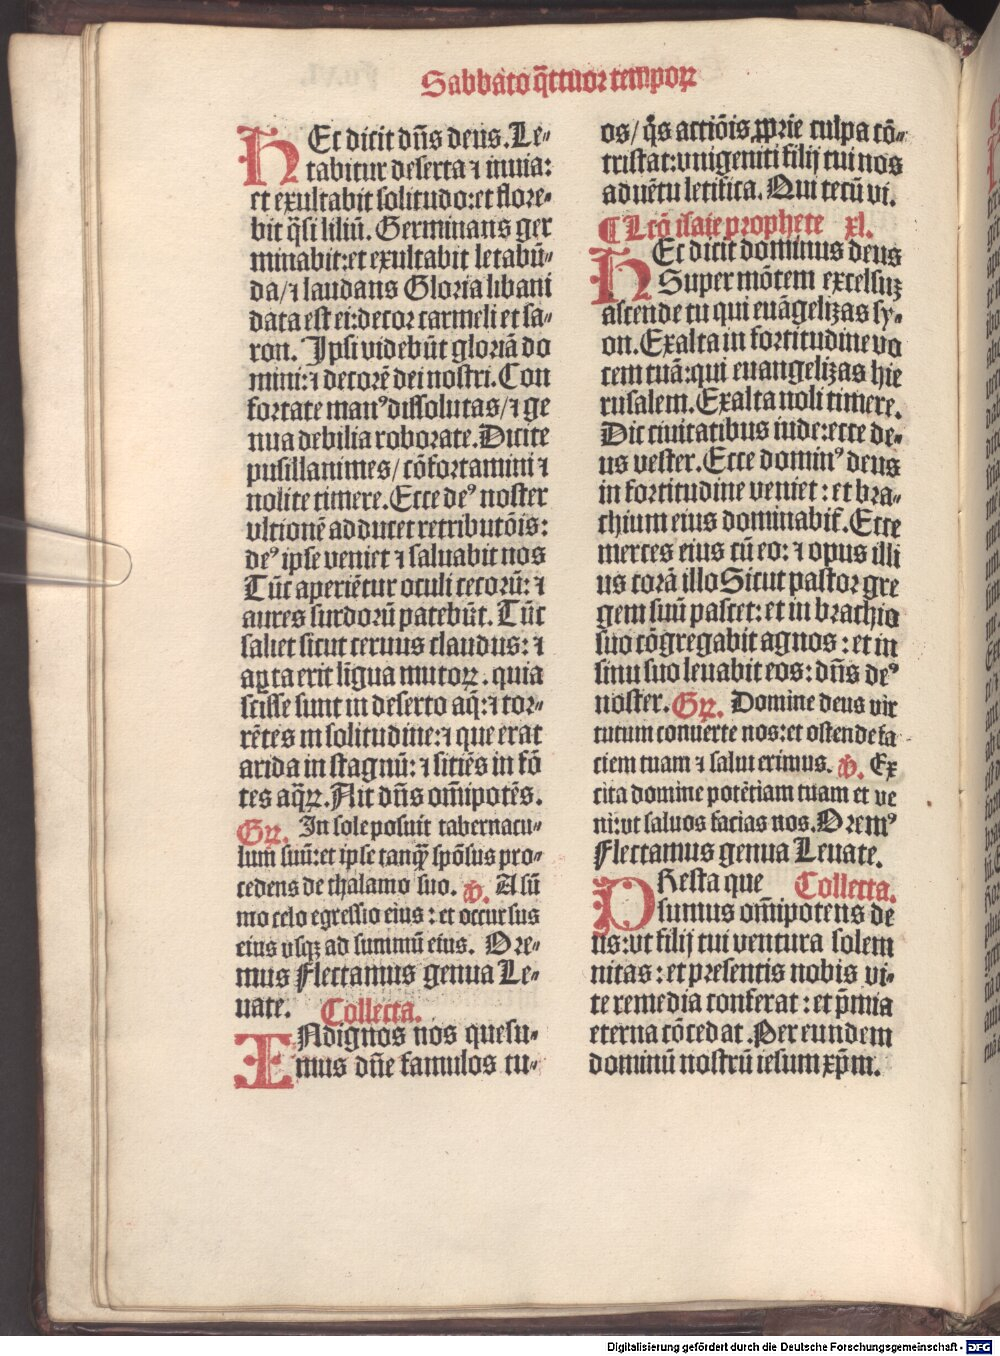 Sabbato q̄ttuor tempoꝝ
Hec dicit dn̄s deus. Le⸗
tabitur deserta ⁊ inuia:
et exultabit solitudo: et flore⸗
bit q̄si liliū. Germinans ger
minabit: et exultabit letabū⸗
da/ ⁊ laudans Gloria libani
data est ei: decor carmeli et sa⸗
ron. Ipsi videbūt gloriā do
mini: ⁊ decorē dei nostri. Con
fortate manꝰ dissolutas/ ⁊ ge
nua debilia roborate. Dicite
pusillanimes/ cōfortamini ⁊
nolite timere. Ecce deꝰ noster
vltionē adducet retributōis:
deꝰ ipse veniet ⁊ saluabit nos
Tūc aperiētur oculi cecorū: ⁊
aures surdorū patebūt. Tūc
saliet sicut ceruus claudus: ⁊
apta erit līgua mutoꝝ. quia
scisse sunt in deserto aq̄: ⁊ tor⸗
rētes in solitudine: ⁊ que erat
arida in stagnū: ⁊ sitiēs in fō
tes aq̄ꝝ. Ait dn̄s om̄ipotēs.
Gꝝ. In sole posuit tabernacu⸗
lum suū: et ipse tanqꝫ spōsus pro⸗
cedens de thalamo suo. ℣. A sū
mo celo egressio eius: et occursus
eius vsqꝫ ad summū eius. Ore⸗
mus Flectamus genua Le⸗
uate. Collecta.
INdignos nos quesu⸗
mus dn̄e famulos tu⸗
os/ q̄s actiōis ꝓprie culpa cō⸗
tristat: vnigeniti filij tui nos
aduētu letifica. Qui tecū vi.
¶ Lcō isaie prophete xl.
Hec dicit dominus deus
Super mōtem excelsuꝫ
ascende tu qui euāgelizas sy⸗
on. Exalta in fortitudine vo
cem tuā: qui euangelizas hie
rusalem. Exalta noli timere.
Dic ciuitatibus iude: ecce de⸗
us vester. Ecce dominꝰ deus
in fortitudine veniet: et bra⸗
chium eius dominabit̄. Ecce
merces eius cū eo: ⁊ opus illi
us corā illo Sicut pastor gre
gem suū pascet: et in brachio
suo cōgregabit agnos: et in
sinu suo leuabit eos: dn̄s deꝰ
noster. Gꝝ. Domine deus vir
tutum conuerte nos: et ostende fa
ciem tuam ⁊ salui erimus. ℣. Ex
cita domine potētiam tuam et ve
ni: vt saluos facias nos. Oremꝰ
Flectamus genua Leuate.
PResta que Collecta.
sumus om̄ipotens de
us: vt filij tui ventura solem
nitas: et presentis nobis vi⸗
te remedia conferat: et p̄mia
eterna cōcedat. Per eundem
dominū nostrū iesum xp̄m.
Digitalisierung gefördert durch die Deutsche Forschungsgemeinschaft - DFG